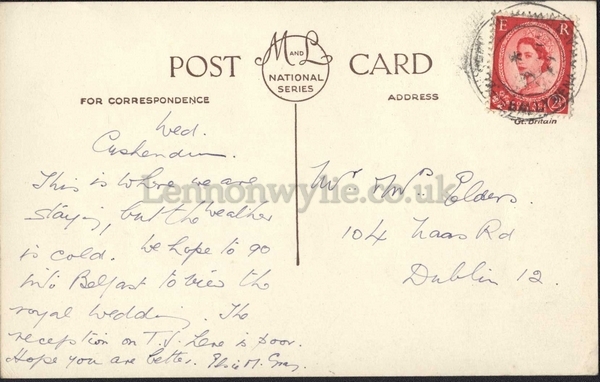 POST CARD
M AND L
NATIONAL
SERIES
FOR CORRESPONDENCE
ADDRESS
E R
2½
Gt. Britain
Lennonwylie.co.uk
Wed.
Cushendun.
This is where we are
staying, but the weather
is cold. We hope to go
into Belfast to view the
royal wedding. The
reception on T.V. here is poor.
Hope you are better. Elsie M. Gray.
Mr & Mrs Elders.
104 Naas Rd
Dublin 12.